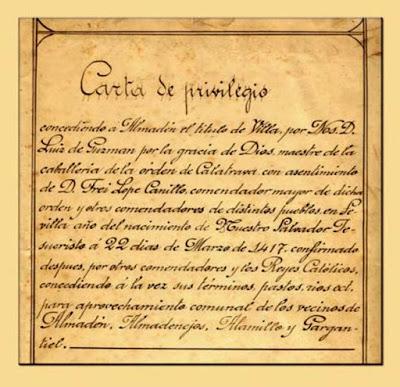 Carta de privilegio
concediendo á Almadén el título de Villa, por Nos. D.
Luiz de Guzman por la gracia de Dios, maestre de la
caballería de la orden de Calatrava con asentimiento
de D. Frei Lope Carrillo, comendador mayor de dicha
orden y otros comendadores de distintos pueblos, en Se-
villa año del nacimiento de Nuestro Salvador Je-
sucristo á 22 dias de Marzo de 1417. confirmado
despues, por otros comendadores y los Reyes Católicos,
concediendo á la vez sus términos, pastos, rios ect.
para aprovechamiento comunal de los vecinos de
Almadén, Almadenejos, Alamillo y Gargan-
tiel.